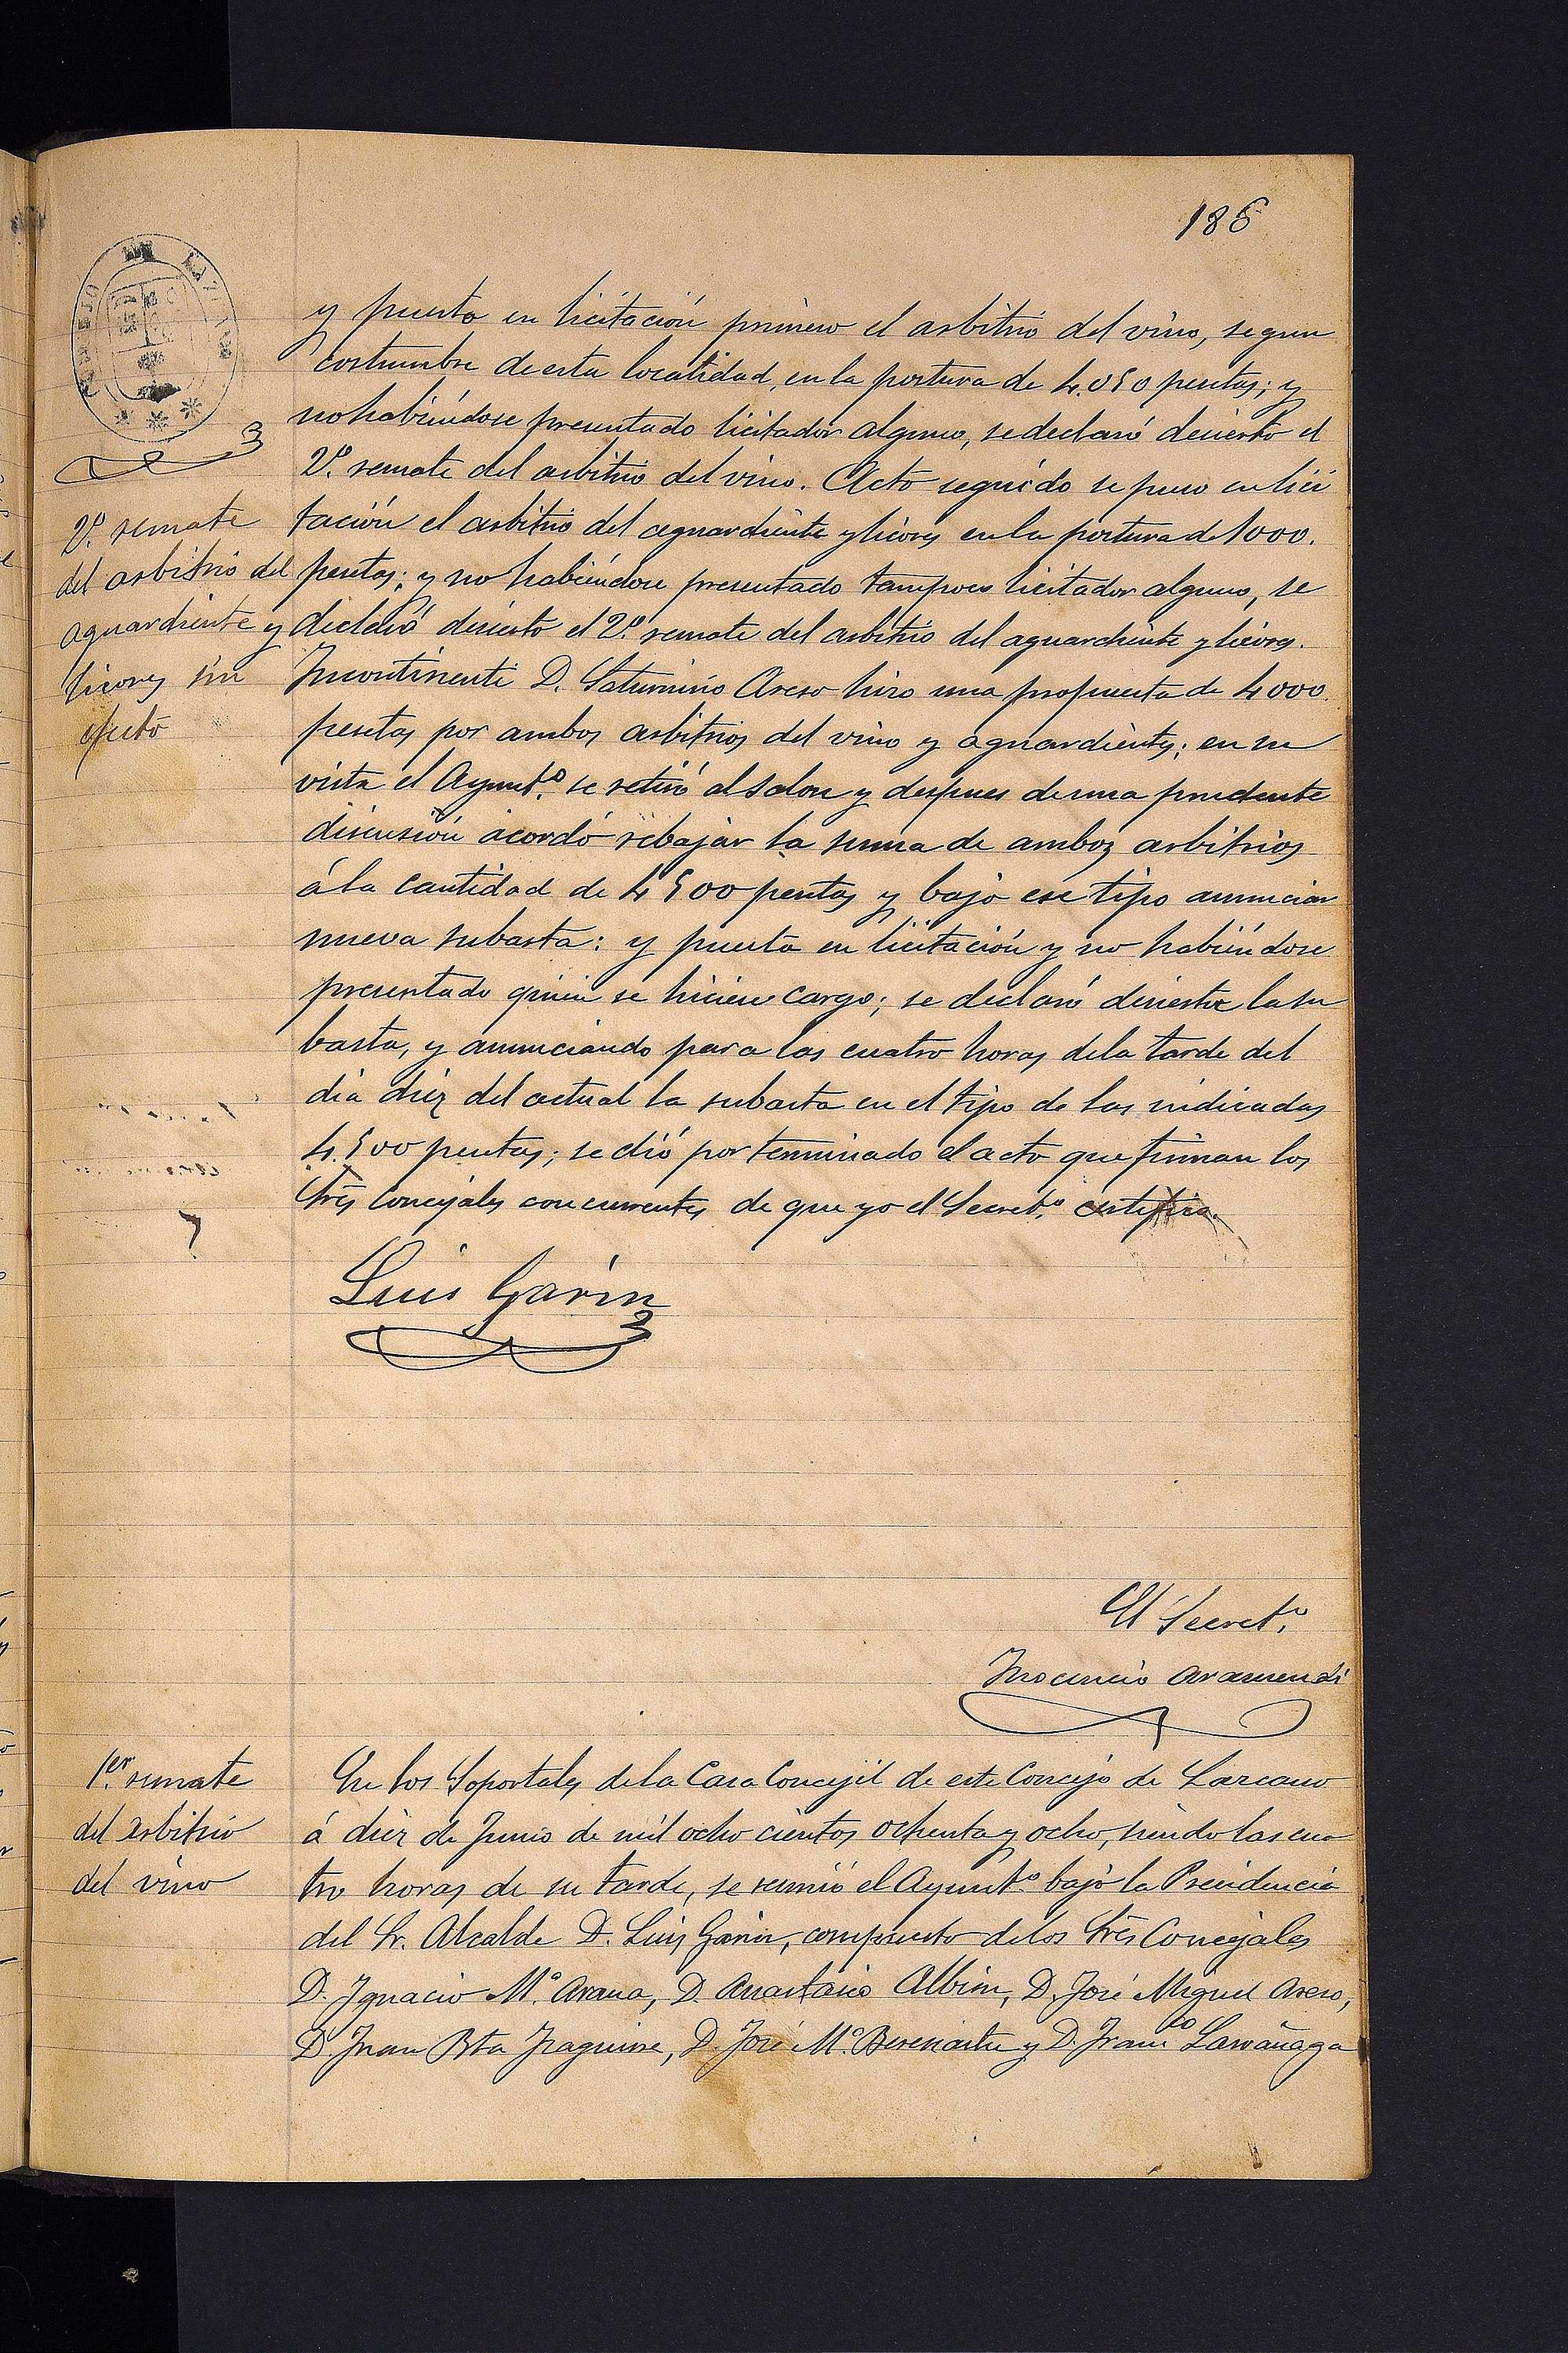 186
y puesto en licitación primero el arbitrio del vino, segun
costumbre de esta localidad, en la postura de 4.050 pesetas; y
no habiéndose presentado licitador alguno, se declaró desierto el
2º. remate del arbitrio del vino. Acto seguido se puso en lici
2º. remate
tación el arbitrio del aguardiente y licores en la postura de 1000.
del arbitrio del
pesetas; y no habiéndose presentado tampoco licitador alguno, se
aguardiente y
declaró desierto el 2º. remate del arbitrio del aguardiente y licores.
licores sin
Incontinenti D. Saturnino Areso hizo una propuesta de 4000.
efecto
pesetas por ambos arbitrios del vino y aguardiente; en su
vista el Ayunt.º se retiró al salon y despues de una prudente
discusión acordó rebajar la suma de ambos arbitrios
á la cantidad de 4500 pesetas y bajo ese tipo anunciar
nueva subasta: y puesta en licitación y no habiéndose
presentado quien se hiciese cargo; se declaró desierta la su
basta, y anunciando para las cuatro horas de la tarde del
dia diez del actual la subasta en el tipo de las indicadas
4.500 pesetas; se dió por terminado el acto que firman los
Sres Concejales concurrentes de que yo el Secret.º certifico.
Luis Garin
El Secret.º
Inocencio Aramendi
1.er remate
del arbitrio
del vino
En los Soportales de la Casa Concejil de este Concejo de Lazcano
á diez de Junio de mil ocho cientos ochenta y ocho, siendo las cua
tro horas de su tarde, se reunió el Ayunt.º bajo la Presidencia
del Sr. Alcalde D. Luis Garin, compuesto de los Sres Concejales
D. Ignacio M.ª Arana, D. Anastasio Albisu, D. José Miguel Areso,
D. Juan Bta Iraguirre, D. José M.ª Bereciartu y D. Franco Larrañaga